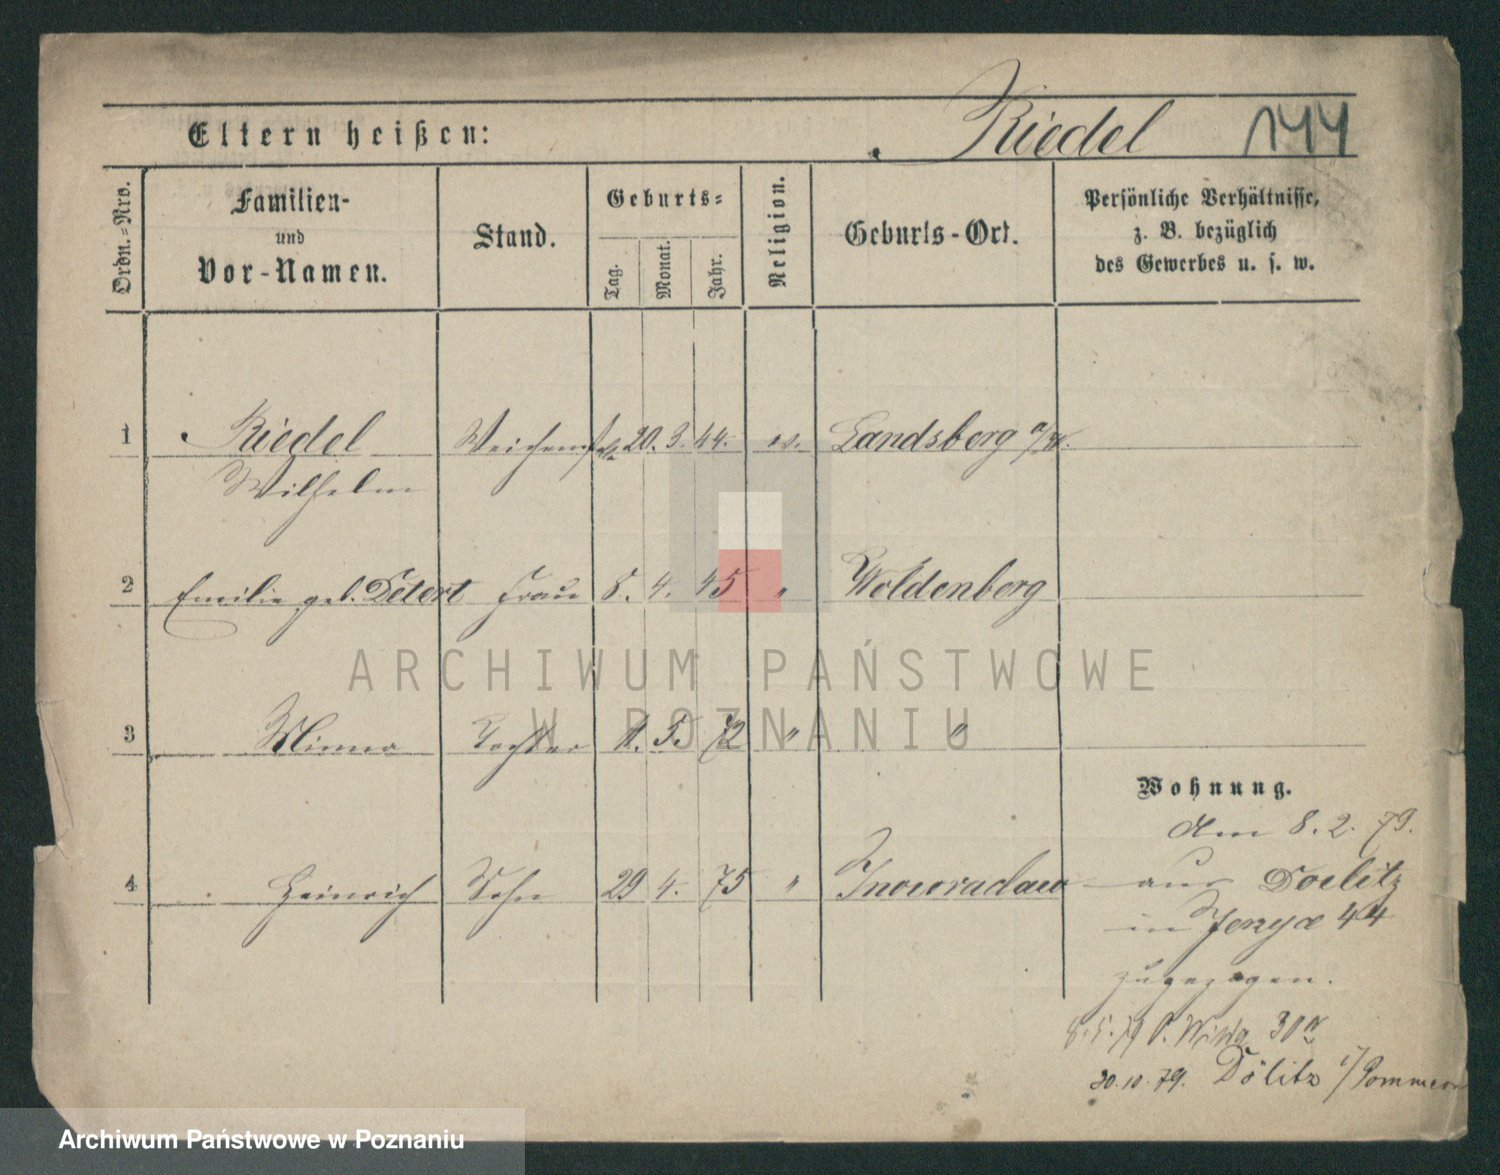 Eltern heißen: Riedel 144
Ordn.-Nro. Familien- und Vor-Namen. Stand. Geburts- Tag. Monat. Jahr. Religion. Geburts-Ort. Persönliche Verhältnisse, z. B. bezüglich des Gewerbes u. s. w.
1 Riedel 20. 3. 44. ev. Landsberg a/W.
Wilhelm
2 Emilie geb. Detert Frau 8. 4. 45 " Woldenberg
ARCHIWUM PAŃSTWOWE
W POZNANIU
3 Minna Tochter 11. 5 72 " "
Wohnung.
Am 8. 2. 79.
4 Heinrich Sohn 29 4. 75 " Inowraclaw aus Doelitz
in Jerzyce 44
zugezogen.
30a
20. 10. 79. Dölitz i/Pommern
Archiwum Państwowe w Poznaniu